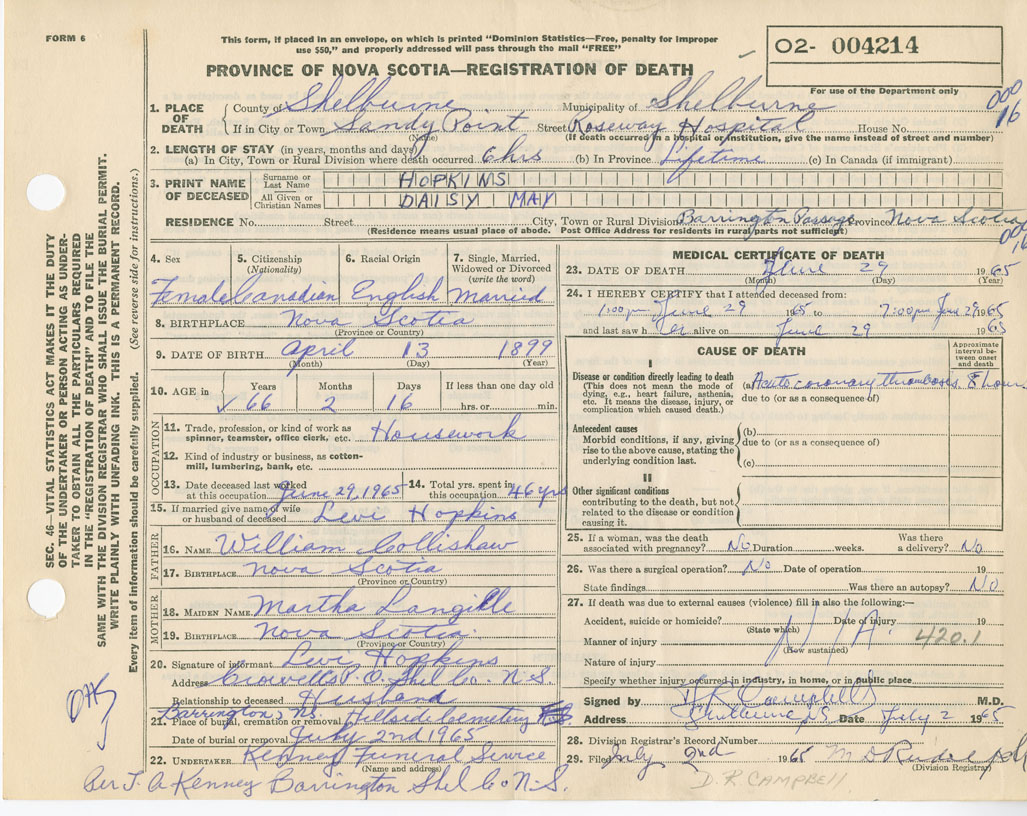 FORM 6
This form, if placed in an envelope, on which is printed "Dominion Statistics—Free, penalty for improper
use $50," and properly addressed will pass through the mail "FREE"
02- 004214
PROVINCE OF NOVA SCOTIA—REGISTRATION OF DEATH
For use of the Department only
000
16
1. PLACE OF DEATH County of Shelburne Municipality of Shelburne
If in City or Town Sandy Point Street Roseway Hospital House No.
(Name) (If death occurred in a hospital or institution, give the name instead of street and number)
2. LENGTH OF STAY (in years, months and days)
(a) In City, Town or Rural Division where death occurred 6 hrs (b) In Province Lifetime (c) In Canada (if immigrant)
3. PRINT NAME OF DECEASED Surname or Last Name HOPKINS
All Given or Christian Names DAISY MAY
RESIDENCE No. Street City, Town or Rural Division Barrington Passage Province Nova Scotia
(Residence means usual place of abode. Post Office Address for residents in rural parts not sufficient)
000
16
4. Sex 5. Citizenship (Nationality) 6. Racial Origin 7. Single, Married, Widowed or Divorced (write the word)
Female Canadian English Married
8. BIRTHPLACE Nova Scotia
(Province or Country)
9. DATE OF BIRTH April 13 1899
(Month) (Day) (Year)
10. AGE in Years Months Days If less than one day old
66 2 16 hrs. or min.
OCCUPATION
11. Trade, profession, or kind of work as spinner, teamster, office clerk, etc. Housework
12. Kind of industry or business, as cotton-mill, lumbering, bank, etc.
13. Date deceased last worked at this occupation June 29, 1965 14. Total yrs. spent in this occupation 46 yrs
15. If married give name of wife or husband of deceased Levi Hopkins
FATHER
16. NAME William Collishaw
17. BIRTHPLACE Nova Scotia
(Province or Country)
MOTHER
18. MAIDEN NAME Martha Langille
19. BIRTHPLACE Nova Scotia
(Province or Country)
20. Signature of informant Levi Hopkins
Address Crowells P.O. Shel Co. N.S.
Relationship to deceased Husband
Barrington, NS.
21. Place of burial, cremation or removal Hillside Cemetery
Date of burial or removal July 2nd 1965
22. UNDERTAKER Kenney Funeral Service
(Name and address)
Per J. A Kenney Barrington Shel Co N.S.
MEDICAL CERTIFICATE OF DEATH
23. DATE OF DEATH June 29 1965
(Month) (Day) (Year)
24. I HEREBY CERTIFY that I attended deceased from:
1:00 pm, June 29 1965 to 7:00 pm June 29 1965
and last saw her alive on June 29 1965
CAUSE OF DEATH
Approximate interval between onset and death
I
Disease or condition directly leading to death
(This does not mean the mode of dying, e.g., heart failure, asthenia, etc. It means the disease, injury, or complication which caused death.)
(a) Acute coronary thrombosis. 8 hours
due to (or as a consequence of)
Antecedent causes
Morbid conditions, if any, giving rise to the above cause, stating the underlying condition last.
(b)
due to (or as a consequence of)
(c)
II
Other significant conditions
contributing to the death, but not related to the disease or condition causing it.
25. If a woman, was the death associated with pregnancy? No Duration weeks. Was there a delivery? No
26. Was there a surgical operation? No Date of operation 19
State findings Was there an autopsy? No
27. If death was due to external causes (violence) fill in also the following:—
Accident, suicide or homicide? Date of injury 19
(State which)
N/A
420.1
Manner of injury
(How sustained)
Nature of injury
Specify whether injury occurred in industry, in home, or in public place
Signed by D R Campbell M.D.
Address Shelburne NS Date July 2 1965
28. Division Registrar's Record Number
29. Filed July 2nd 1965
(Division Registrar)
D. R. CAMPBELL
SEC. 46—VITAL STATISTICS ACT MAKES IT THE DUTY
OF THE UNDERTAKER OR PERSON ACTING AS UNDER-
TAKER TO OBTAIN ALL THE PARTICULARS REQUIRED
IN THE "REGISTRATION OF DEATH" AND TO FILE THE
SAME WITH THE DIVISION REGISTRAR WHO SHALL ISSUE THE BURIAL PERMIT.
WRITE PLAINLY WITH UNFADING INK. THIS IS A PERMANENT RECORD.
Every item of information should be carefully supplied. (See reverse side for instructions.)